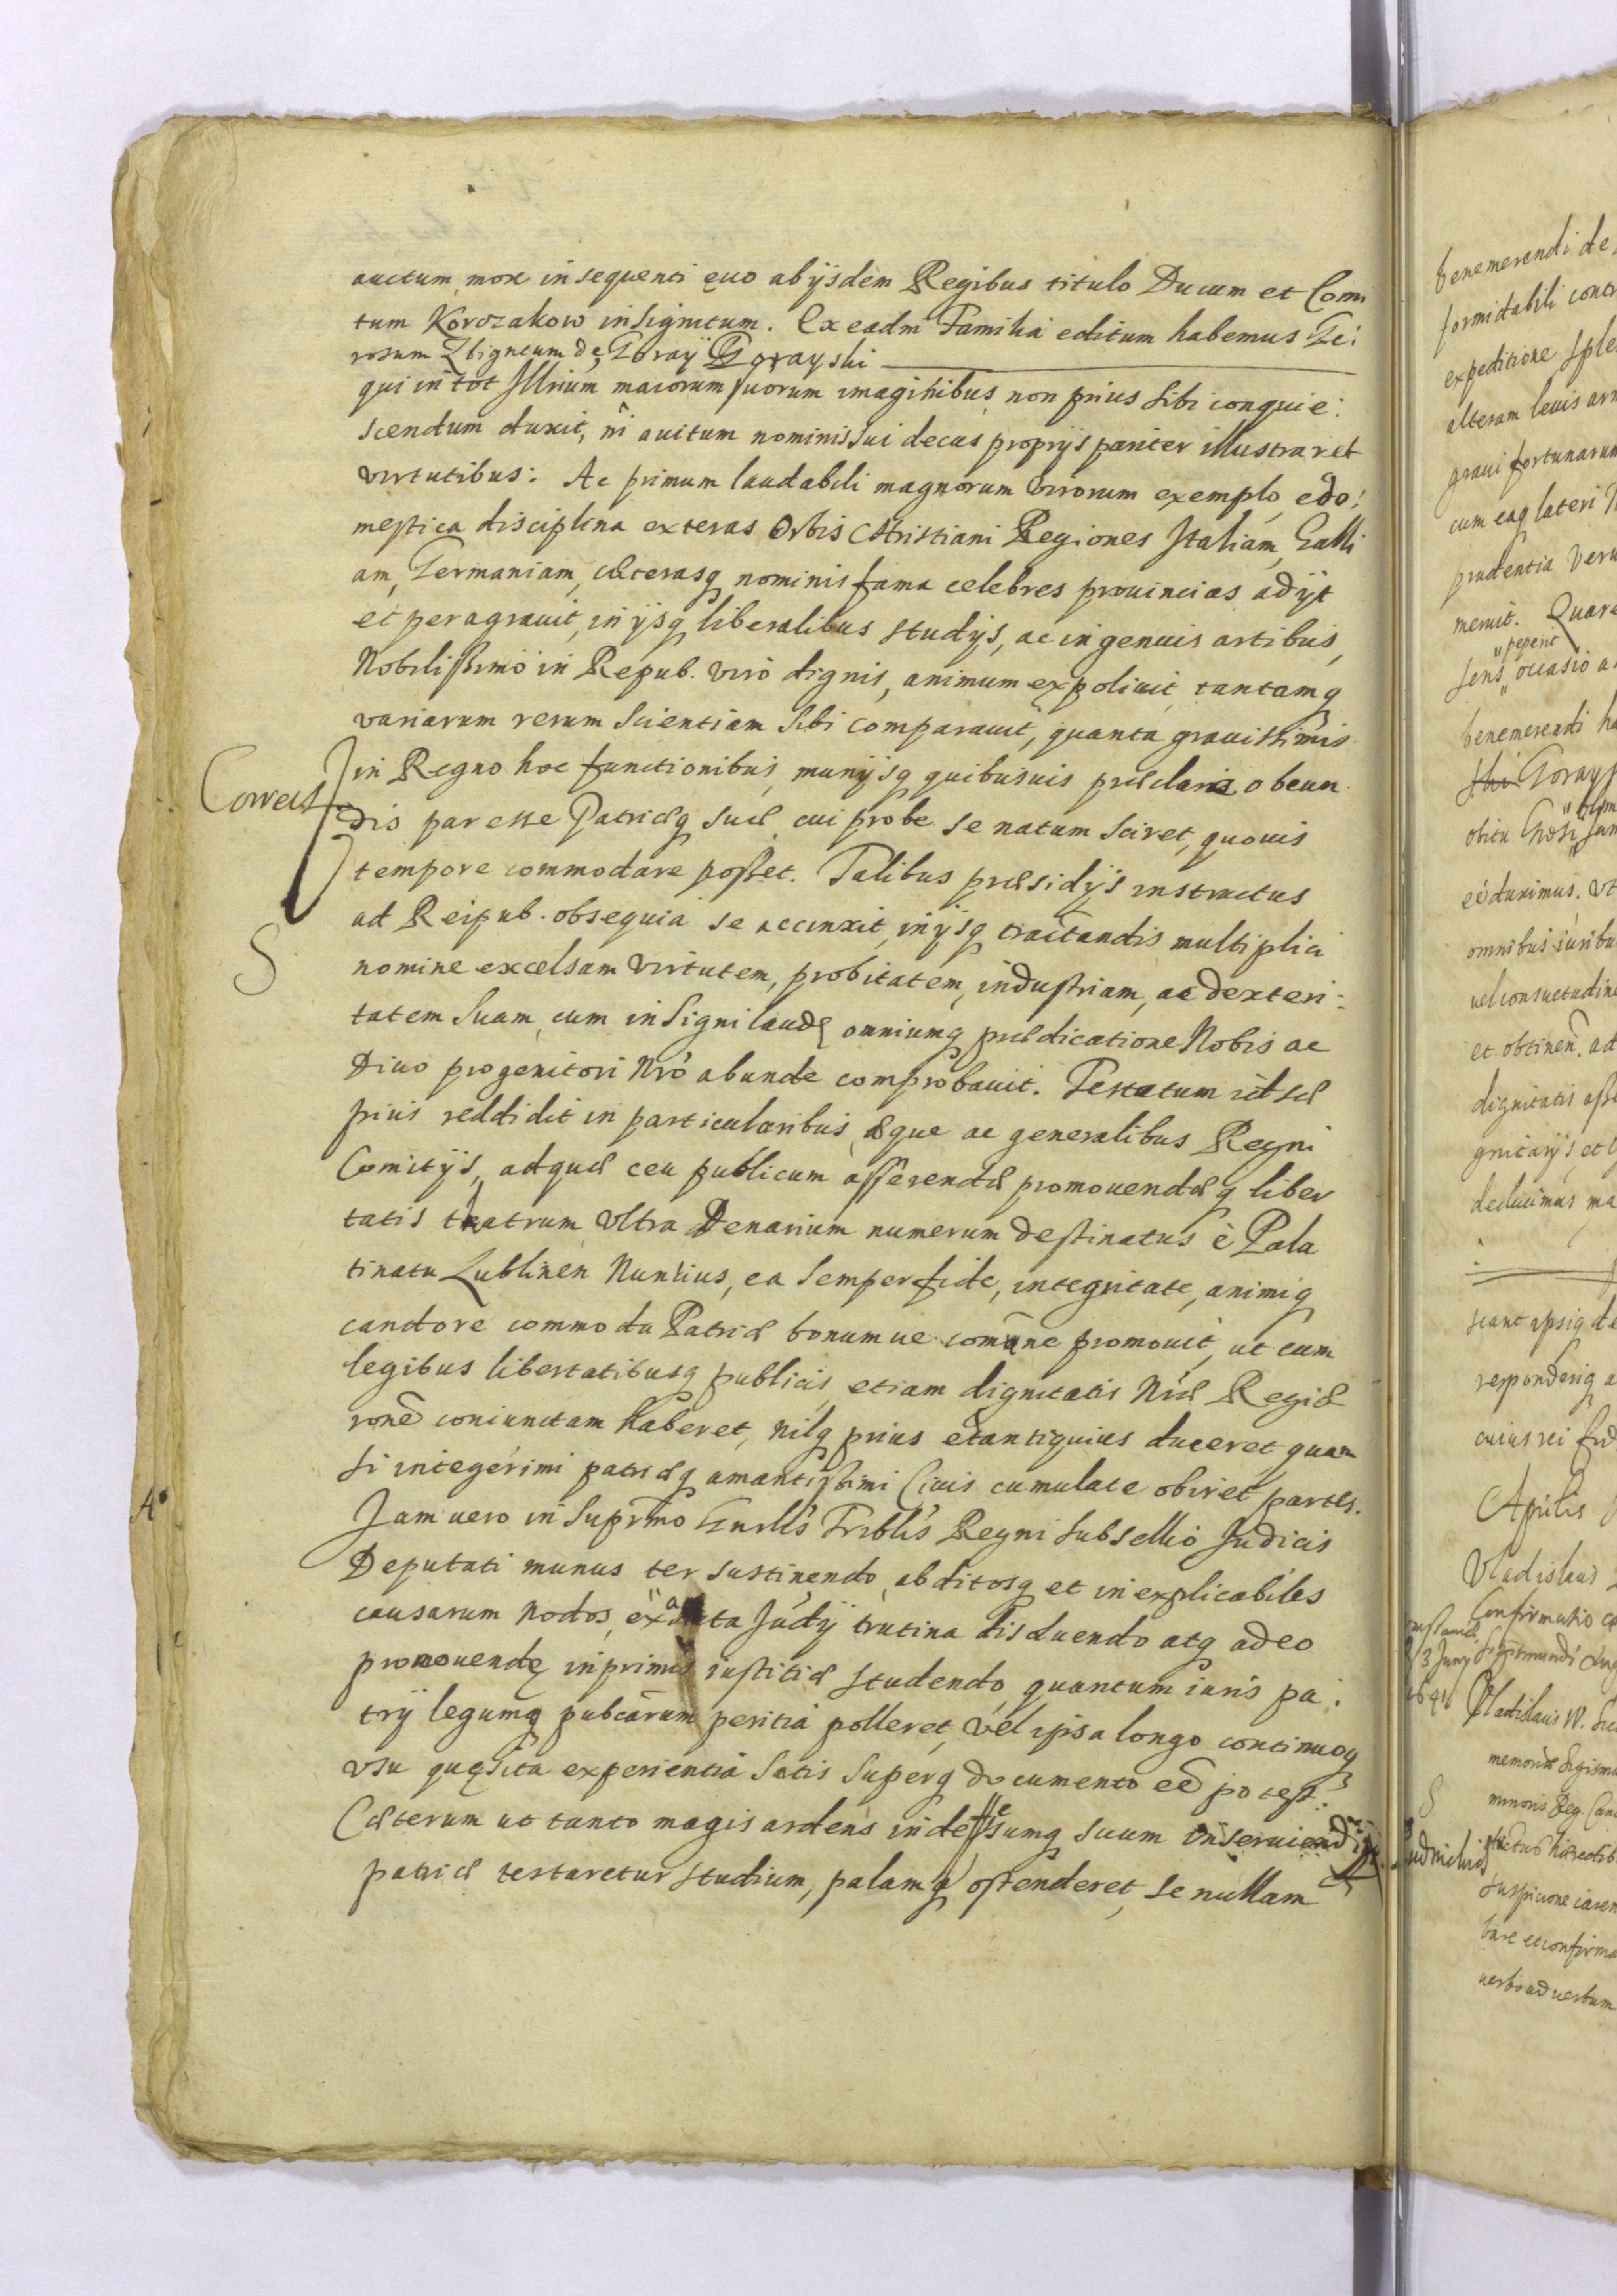 auctum, mox insequenti ęuo ab ijsdem Regibus titulo Ducum et Comi
tum Korczakow insignitum. Ex eadm Familia editum habemus Ge:
rosum Zbigneum de Goraij Gorayski
qui in tot Illrium maiorum suorum imaginibus non prius sibi conquie:
scendum duxit, ni auitum nominis sui decus proprijs pariter illustraret
virtutibus: Ac primum laudabili magnorum virorum exemplo, e do:
mestica disciplina exteras Orbis Christiani Regiones Italiam, Galli
am, Germaniam, cæterasq nominis fama celebres prouincias adijt
et peragrauit, in ijsq liberalibus studijs, ac ingenuis artibus,
Nobilissimo in Repub. viro dignis, animum expoliuit, tantamq
variarum rerum scientiam sibi comparauit, quanta grauissimis
in Regno hoc functionibus, munijsq quibusuis præclaris obeun
Correct
dis par esse Patriæq suæ, cui probe se natum sciret, quouis
tempore commodare posset. Talibus præsidijs instructus
ad Reipub. obsequia se accinxit, in ijsq tractandis multiplici
S
nomine excelsam virtutem, probitatem, industriam, ac dexteri:
tatem suam, cum insigni laude omniumq prædicatione Nobis ac
Diuo progenitori Nro abunde comprobauit. Testatum id sæ
pius reddidit in particularibus æque ac generalibus Regni
Comitijs, ad quæ ceu publicum asserendæ promouendæq liber
tatis theatrum vltra Denarium numerum destinatus è Pala
tinatu Lublinen Nuntius, ea semper fide, integritate, animiq
candore commoda Patriæ bonumue comune promouit, ut cum
legibus libertatibusq publicis, etiam dignitatis Nræ Regiæ
ronē coniunctam haberet, nilq prius et antiquius duceret, quam
si integerimi patriæq amantissimi Ciuis cumulate obiret partes.
Jam vero in Supremo Gnrlis Triblis Regni subsellio Judicis
Deputati munus ter sustinendo, abditosq et inexplicabiles
causarum nodos, exacta Judij trutina dissoluendo atq adeo
promouendę inprimis iustitiæ studendo, quantum iuris pa:
trij legumq pubcarum peritia polleret, vel ipsa longo continuoq
vsu quęsita experientia satis superq documento eē potest.
Cæterum ut tanto magis ardens indefessumq suum inseruiendi
patriæ testaretur studium, palamq ostenderet, se nullam
benemerendi de
formidabili contr
expeditione sple
alteram leuis arm
graui fortunarum
cum eaq lateri N
prudentia veru
meruit. Quare
peperit
sens occasio a
benemerendi ha
Goraysk
obitu
eē duximus. Vt
omnibus iuribu
uel consuetudine
et obtinen. ad
dignitatis asse
gnitarijs, et
declinimus ma
sciant ipsiq de
responderiq a
cuius rei fid
Aprilis
Vladislaus
Confirmatio
3 Junij Sigismundi Aug
1641 Vladislaus IV. Sig
memoriæ Sigismu
minoris Reg. Can
S
suspicione caren
bare et confirma
uerbo ad uerbum